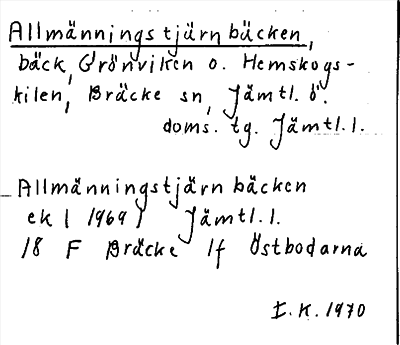 Allmänningstjärnbäcken,
bäck, Grönviken o. Hemskogs-
kilen, Bräcke sn, Jämtl. ö.
doms. tg. Jämtl. l.
Allmänningstjärnbäcken
ek (1969) Jämtl. l.
18 F Bräcke lf Östbodarna
I.K. 1970